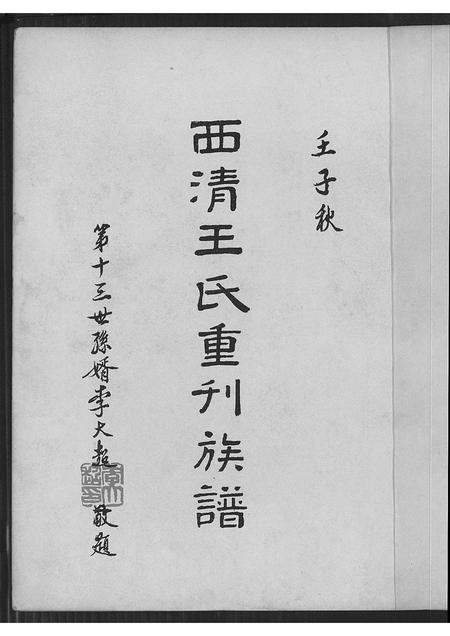 壬子秋
西清王氏重刊族譜
第十三世孫婿李大超敬題